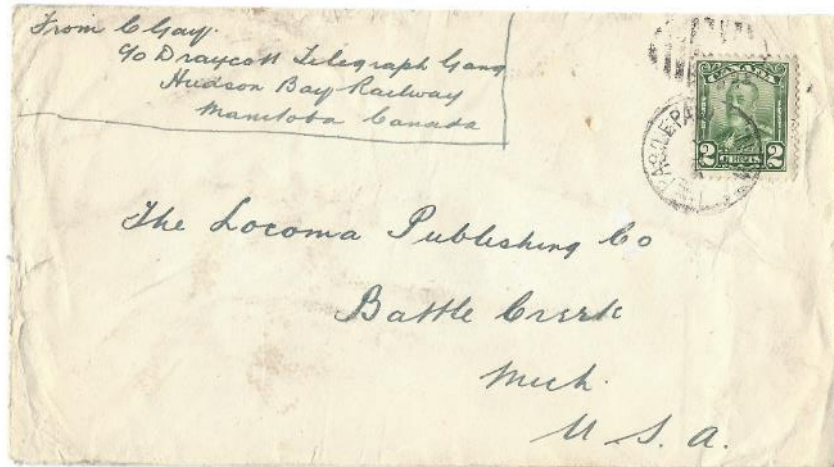 From C Gay.
c/o Draycott Telegraph Gang
Hudson Bay Railway
Manitoba Canada
CANADA
2 2
The Locoma Publishing Co
Battle Creek
Mich.
U. S. A.